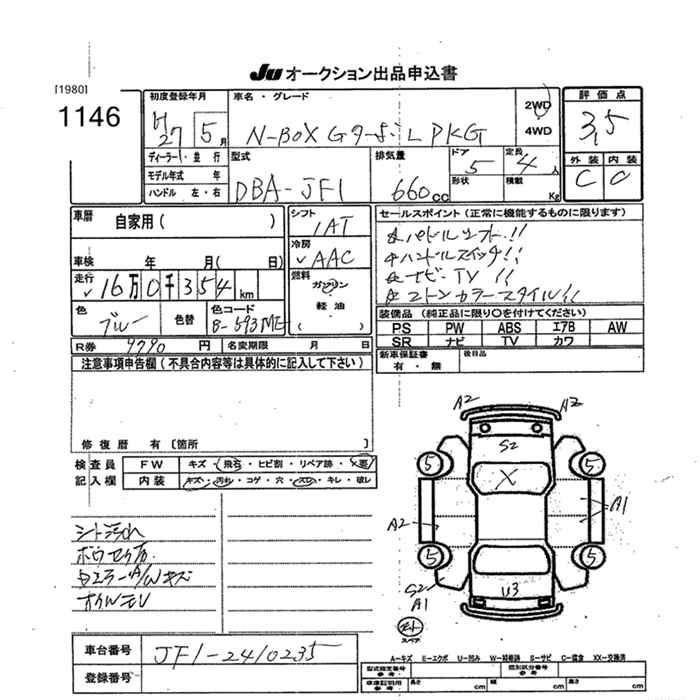 JU オークション出品申込書
[1980]
1146
初度登録年月
H27 5月
車名・グレード
N-BOX Gターボ L PKG
2WD
4WD
評価点
3,5
ディーラー・並行
モデル年式 年
ハンドル 左・右
型式
DBA-JF1
排気量
660cc
ドア
5
形状
定員
4人
積載
Kg
外装 内装
C C
車歴
自家用( )
車検 年 月( 日)
走行
16万0千354km
色
ブルー
色替
色コード
B-593ME
シフト
IAT
冷房
AAC
燃料
ガソリン
軽油
( )
セールスポイント(正常に機能するものに限ります)
☆パドルシフト!!
☆ハンドルスイッチ!!
☆ナビ TV !!
☆2トンカラースタイル!!
装備品(純正品に限り○を付けてください)
PS PW ABS エアB AW
SR ナビ TV カワ
新車保証書
有・無
後日品
R券 9790円
名変期限 月 日
注意事項申告欄(不具合内容等は具体的に記入して下さい)
修復歴 有[箇所 ]
検査員
記入欄
FW キズ・飛石・ヒビ割・リペア跡・X要
内装 キズ・汚れ・コゲ・穴・スレ・キレ・破レ
シート汚れ
A/Wキズ
A2 A2
S2
5 5
X
A2 A1
5 5
S2
A1
U3
スペア
A-キズ E-エクボ U-凹み W-補修跡 S-サビ C-腐食 XX-交換済
車台番号
JF1-2410235
登録番号
型式指定番号
参考
類別区分番号
参考
車庫証明用
参考
長さ cm
幅 cm
高さ cm